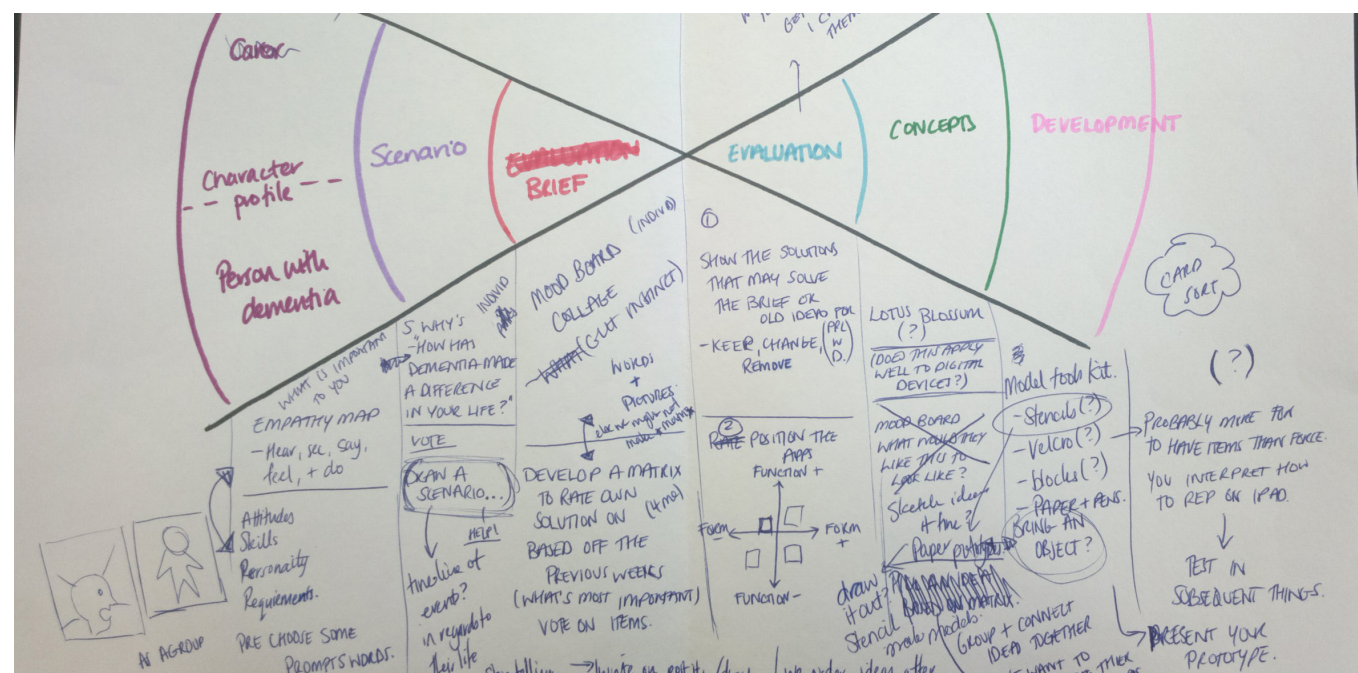 Carer
Character
profile
Person with
dementia
Scenario
BRIEF
EVALUATION
CONCEPTS
DEVELOPMENT
WHAT IS IMPORTANT
TO YOU
EMPATHY MAP
- Hear, see, say,
feel, + do
Attitudes
Skills
Personality
Requirements.
PRE CHOOSE SOME
PROMPTS WORDS.
AS A GROUP
5 WHY'S
INDIVID
- "HOW HAS
DEMENTIA MADE
A DIFFERENCE
IN YOUR LIFE?"
VOTE
SCENARIO...
HELP!
timeline of
events?
in regards to
their life
MOOD BOARD (INDIVID)
COLLAGE
(GUT INSTINCT)
WORDS
+
PICTURES.
DEVELOP A MATRIX
TO RATE OWN
SOLUTION ON
BASED OFF THE
PREVIOUS WEEKS
(WHAT'S MOST IMPORTANT)
VOTE ON ITEMS.
1
SHOW THE SOLUTIONS
THAT MAY SOLVE
THE BRIEF OR
OLD IDEAS FOR
- KEEP, CHANGE,
REMOVE
2
POSITION THE
APPS
FUNCTION +
FORM
-
FORM
+
FUNCTION -
LOTUS BLOSSUM
(?)
(DOES THIS APPLY
WELL TO DIGITAL
DEVICES?)
MOOD BOARD
WHAT WOULD THEY
LIKE THIS TO
LOOK LIKE?
Sketch ideas
Paper
draw
it out?
BASED ON MATRIX.
Stencil
make models.
GROUP + CONNECT
IDEAS TOGETHER
WANT TO
Model tools kit.
- Stencils (?)
- Velcro (?)
- blocks (?)
- PAPER + PENS.
BRING AN
OBJECT?
CARD
SORT
(?)
PROBABLY MORE FUN
TO HAVE ITEMS THAN FORCE.
YOU INTERPRET HOW
TO REP ON IPAD.
TEST IN
SUBSEQUENT THINGS.
PRESENT YOUR
PROTOTYPE.